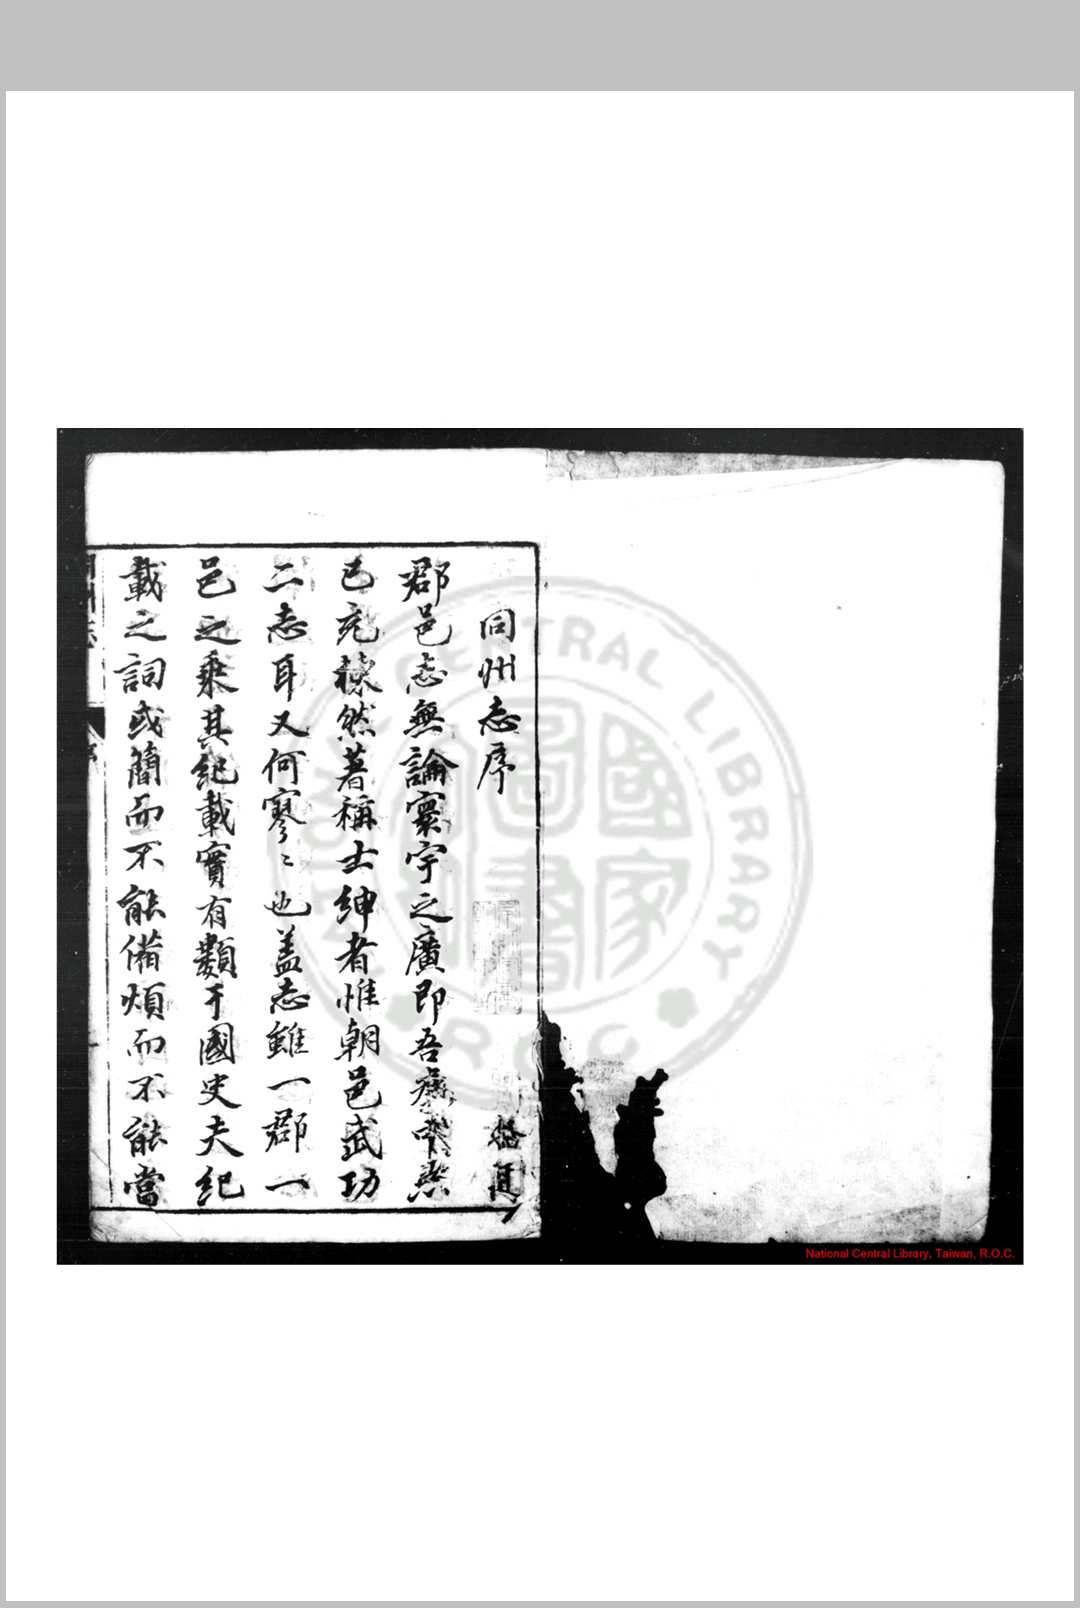 同州志序
郡邑志無論寰宇之廣即吾秦中志
已充棟然著稱士紳者惟朝邑武功
二志耳又何寥〻也盖志雖一郡一
邑之乘其紀載實有類于國史夫紀
載之詞或簡而不能備煩而不能當
NATIONAL CENTRAL LIBRARY
R.O.C.
國家圖書
National Central Library, Taiwan, R.O.C.